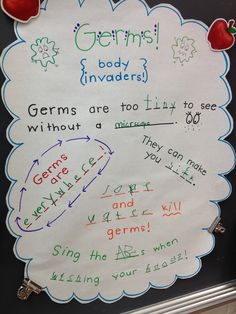 Germs!
{ body
invaders! }
Germs are too tiny to see
without a
They can make
you sick.
Germs
are
everywhere!
soap
and
water kill
germs!
Sing the ABC's when
washing your hands!